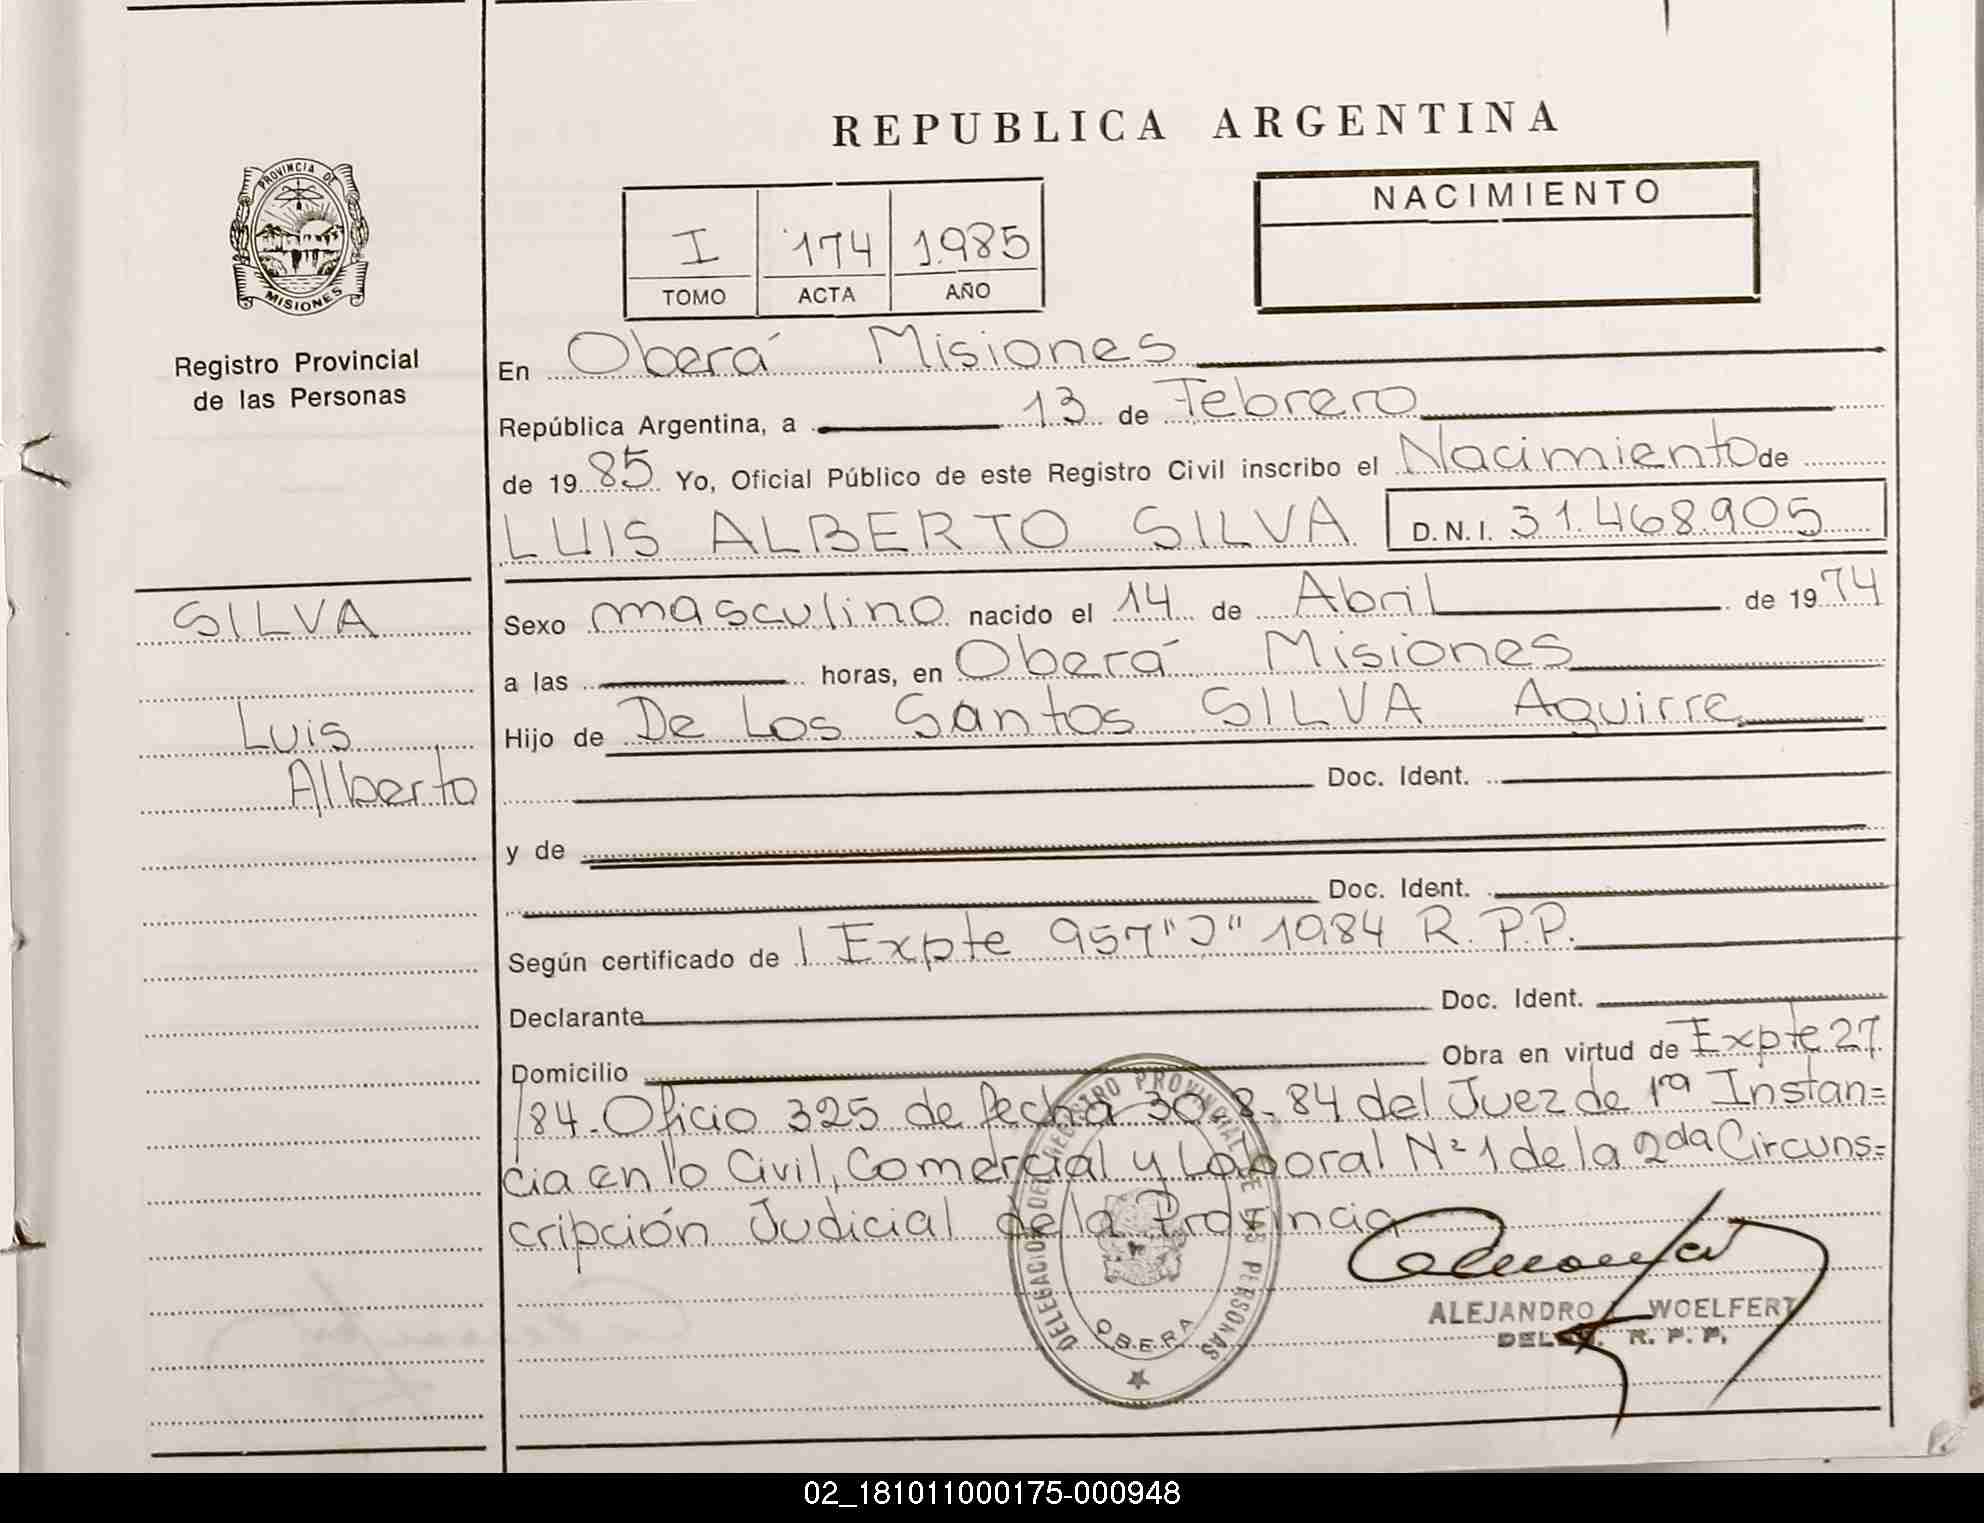 REPUBLICA ARGENTINA
PROVINCIA DE MISIONES
Registro Provincial
de las Personas
I 174 1.985
TOMO ACTA AÑO
NACIMIENTO
En Oberá Misiones
República Argentina, a 13 de Febrero
de 1985 Yo, Oficial Público de este Registro Civil inscribo el Nacimiento de
LUIS ALBERTO SILVA D.N.I. 31.468.905
SILVA
Luis
Alberto
Sexo masculino nacido el 14 de Abril de 1974
a las horas, en Oberá Misiones
Hijo de De Los Santos SILVA Aguirre
Doc. Ident.
y de
Doc. Ident.
Según certificado de | Expte 957 "J" 1984 R.P.P.
Declarante Doc. Ident.
Domicilio Obra en virtud de Expte 27
/84. Oficio 325 de fecha 30-8-84 del Juez de 1ra Instan=
cia en lo Civil, Comercial y Laboral Nº 1 de la 2da Circuns=
cripción Judicial de la Provincia
DELEGACION DEL REGISTRO PROVINCIAL DE LAS PERSONAS
OBERA
ALEJANDRO WOELFERT
R. P. P.
02_181011000175-000948